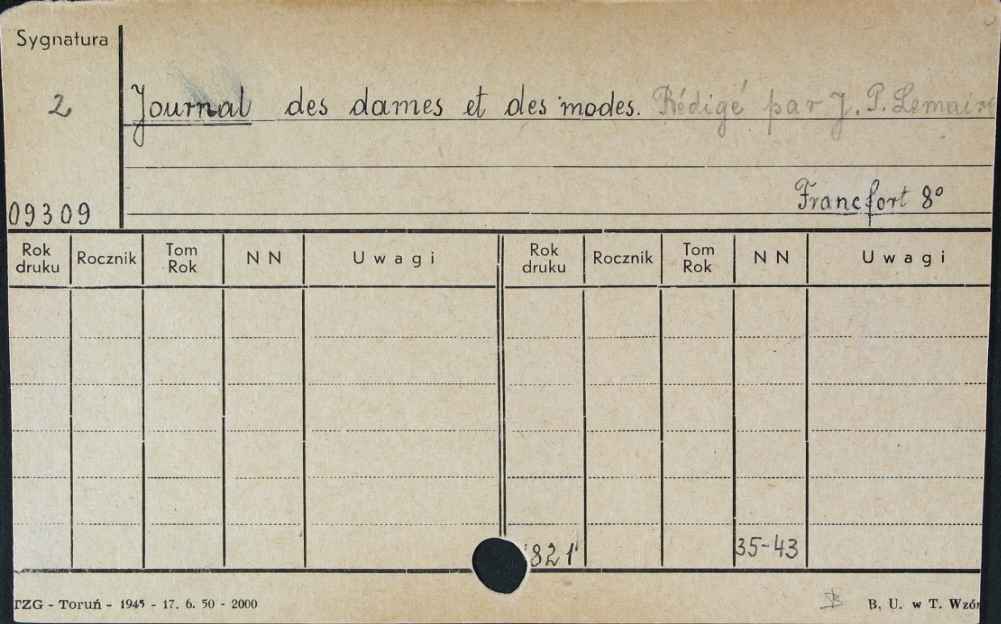 Sygnatura
2 Journal des dames et des modes. Rédigé par J. P. Lemaire
Francfort 8°
09309
Rok druku Rocznik Tom Rok N N Uwagi Rok druku Rocznik Tom Rok N N Uwagi
1821 35-43
TZG - Toruń - 1945 - 17. 6. 50 - 2000 B. U. w T. Wzór